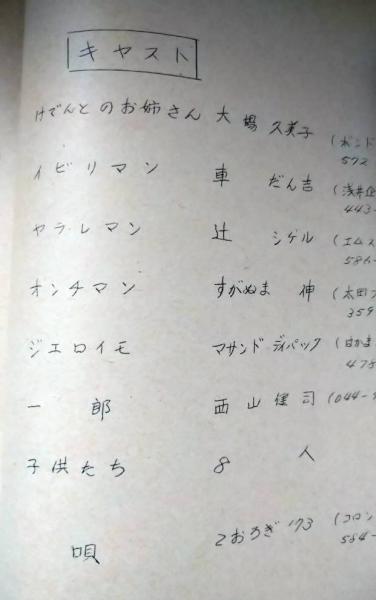 キャスト
けでんとのお姉さん 大場久美子 (ボンド
572
イビリマン 車だん吉 (浅井企
443-
ヤラレマン 辻シゲル (エムス
586-
オンチマン すがぬま伸 (太田プ
359
ジェロイモ マサンド ディパック
475
一郎 西山健司 (044-
子供たち 8人
唄 こおろぎ'73 (コロン
584-